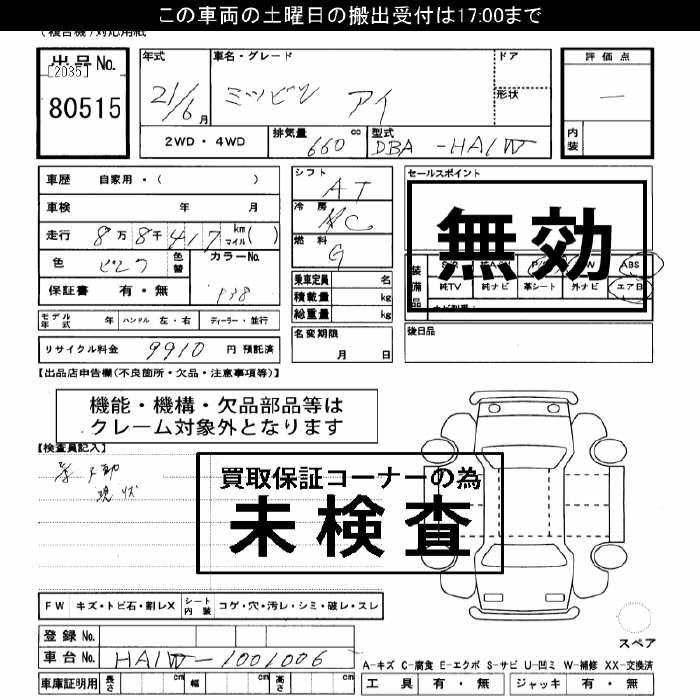 この車両の土曜日の搬出受付は17:00まで
(複合機)対応用紙
出品No.
[2035]
80515
年式
21/6 月
車名・グレード
ミツビシ アイ
ドア
形状
評価点
—
内装
2WD・4WD
排気量 660 cc
型式 DBA -HA1W
車歴 自家用・( )
車検 年 月
走行 8万8千417 km マイル( )
色 ピンク
色替
カラーNo. P38
保証書 有・無
シフト AT
冷房 AC
燃料 G
乗車定員 名
積載量 kg
総重量 kg
セールスポイント
無効
装備品
ABS
純TV 純ナビ 革シート 外ナビ エアB
モデル年式 年 ハンドル 左・右 ディーラー・並行
名変期限
月 日
後日品
リサイクル料金 9910 円 預託済
【出品店申告欄(不良箇所・欠品・注意事項等)】
機能・機構・欠品部品等は
クレーム対象外となります
【検査員記入】
不動
現状
買取保証コーナーの為
未検査
FW キズ・トビ石・割レX シート内装 コゲ・穴・汚レ・シミ・破レ・スレ
スペア
登録No.
車台No. HA1W-1001006
A-キズ C-腐食 E-エクボ S-サビ U-凹ミ W-補修 XX-交換済
車庫証明用 長さ cm 幅 cm 高さ cm
工具 有・無 ジャッキ 有・無